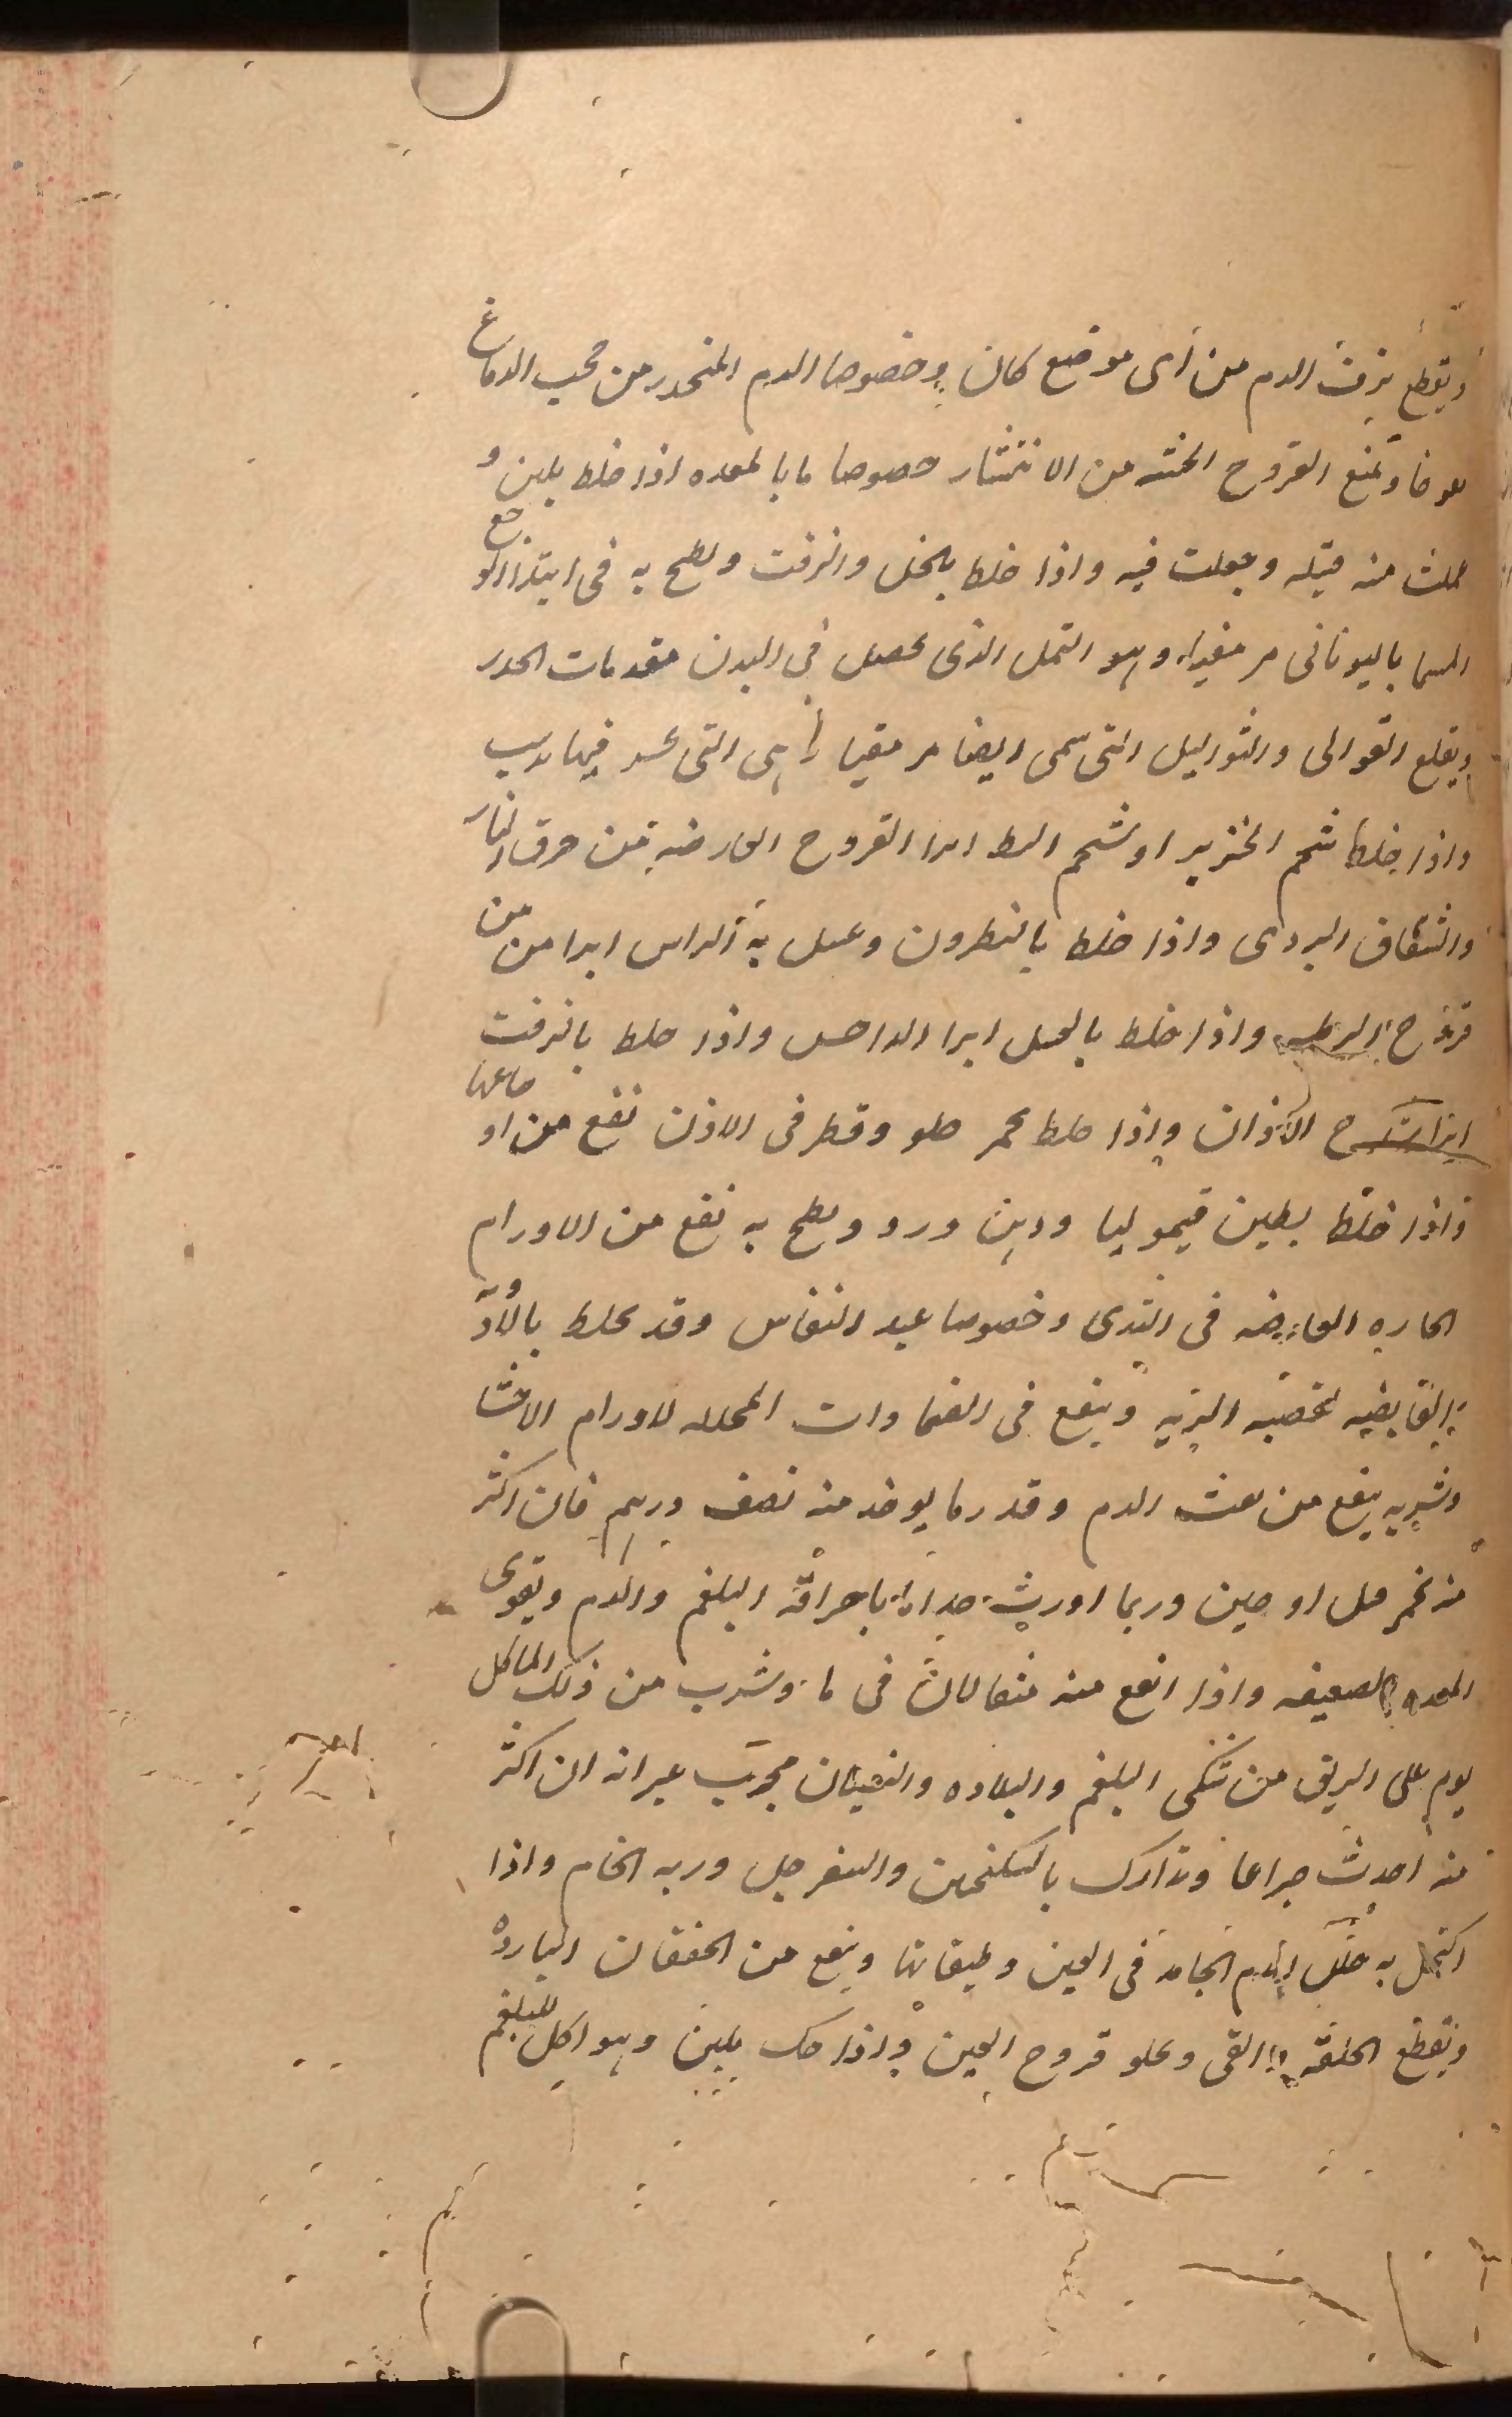 ويقطع نزف الدم من أى موضع كان وخصوصا الدم المنحدر من حجب الدماغ
ويمنع القروح الخبيثه من الانتشار خصوصا ما بالمعده اذا خلط بلبن و
عملت منه فتيله وجعلت فيه واذا خلط بالخل والزفت ولطخ به فى ابتدا الوجع
المسما باليونانى مرمقيا وهو النمل الذى يحصل فى البدن مقدمات الحدر
ويقلع القوابى والثواليل التى تسمى ايضا مرمقيا هى التى يحس فيها بدبيب
واذا خلط شحم الخنزير او شحم البط ابرا القروح العارضه من حرق النار
والشقاق البردى واذا خلط بالنطرون وغسل به الراس ابرا من من
قروح الرطبه واذا خلط بالعسل ابرا الداحس واذا خلط بالزفت
الاذان واذا خلط بخمر حلو وقطر فى الاذن نفع من اوجاعها
واذا خلط بطين قيموليا ودهن ورد ولطخ به نفع من الاورام
الحاره العارضه فى الثدى وخصوصا عند النفاس وقد يخلط بالادويه
القابضه وينفع فى الضمادات المحلله لاورام الاحشا
وشربه ينفع من نفث الدم وقدر ما يوخذ منه نصف درهم فان اكثر
منه بخمر قتل او جنن وربما اورث باحراقه البلغم والدم ويقوى
المعده الضعيفه واذا انقع منه مثقالان فى ماء وشرب من ذلك الماء كل
يوم على الريق من شكى البلغم والبلاده والنسيان مجرب غير انه ان اكثر
منه احدث صداعا وتدارك بالسكنجبين والسفرجل وربه الخام واذا
اكتحل به حلل الدم الجامد فى العين وطبقاتها وينفع من الخفقان البارد
ويقطع الخلفه والقى ويجلو قروح العين واذا حك بلبن وهو اكل للبلغم